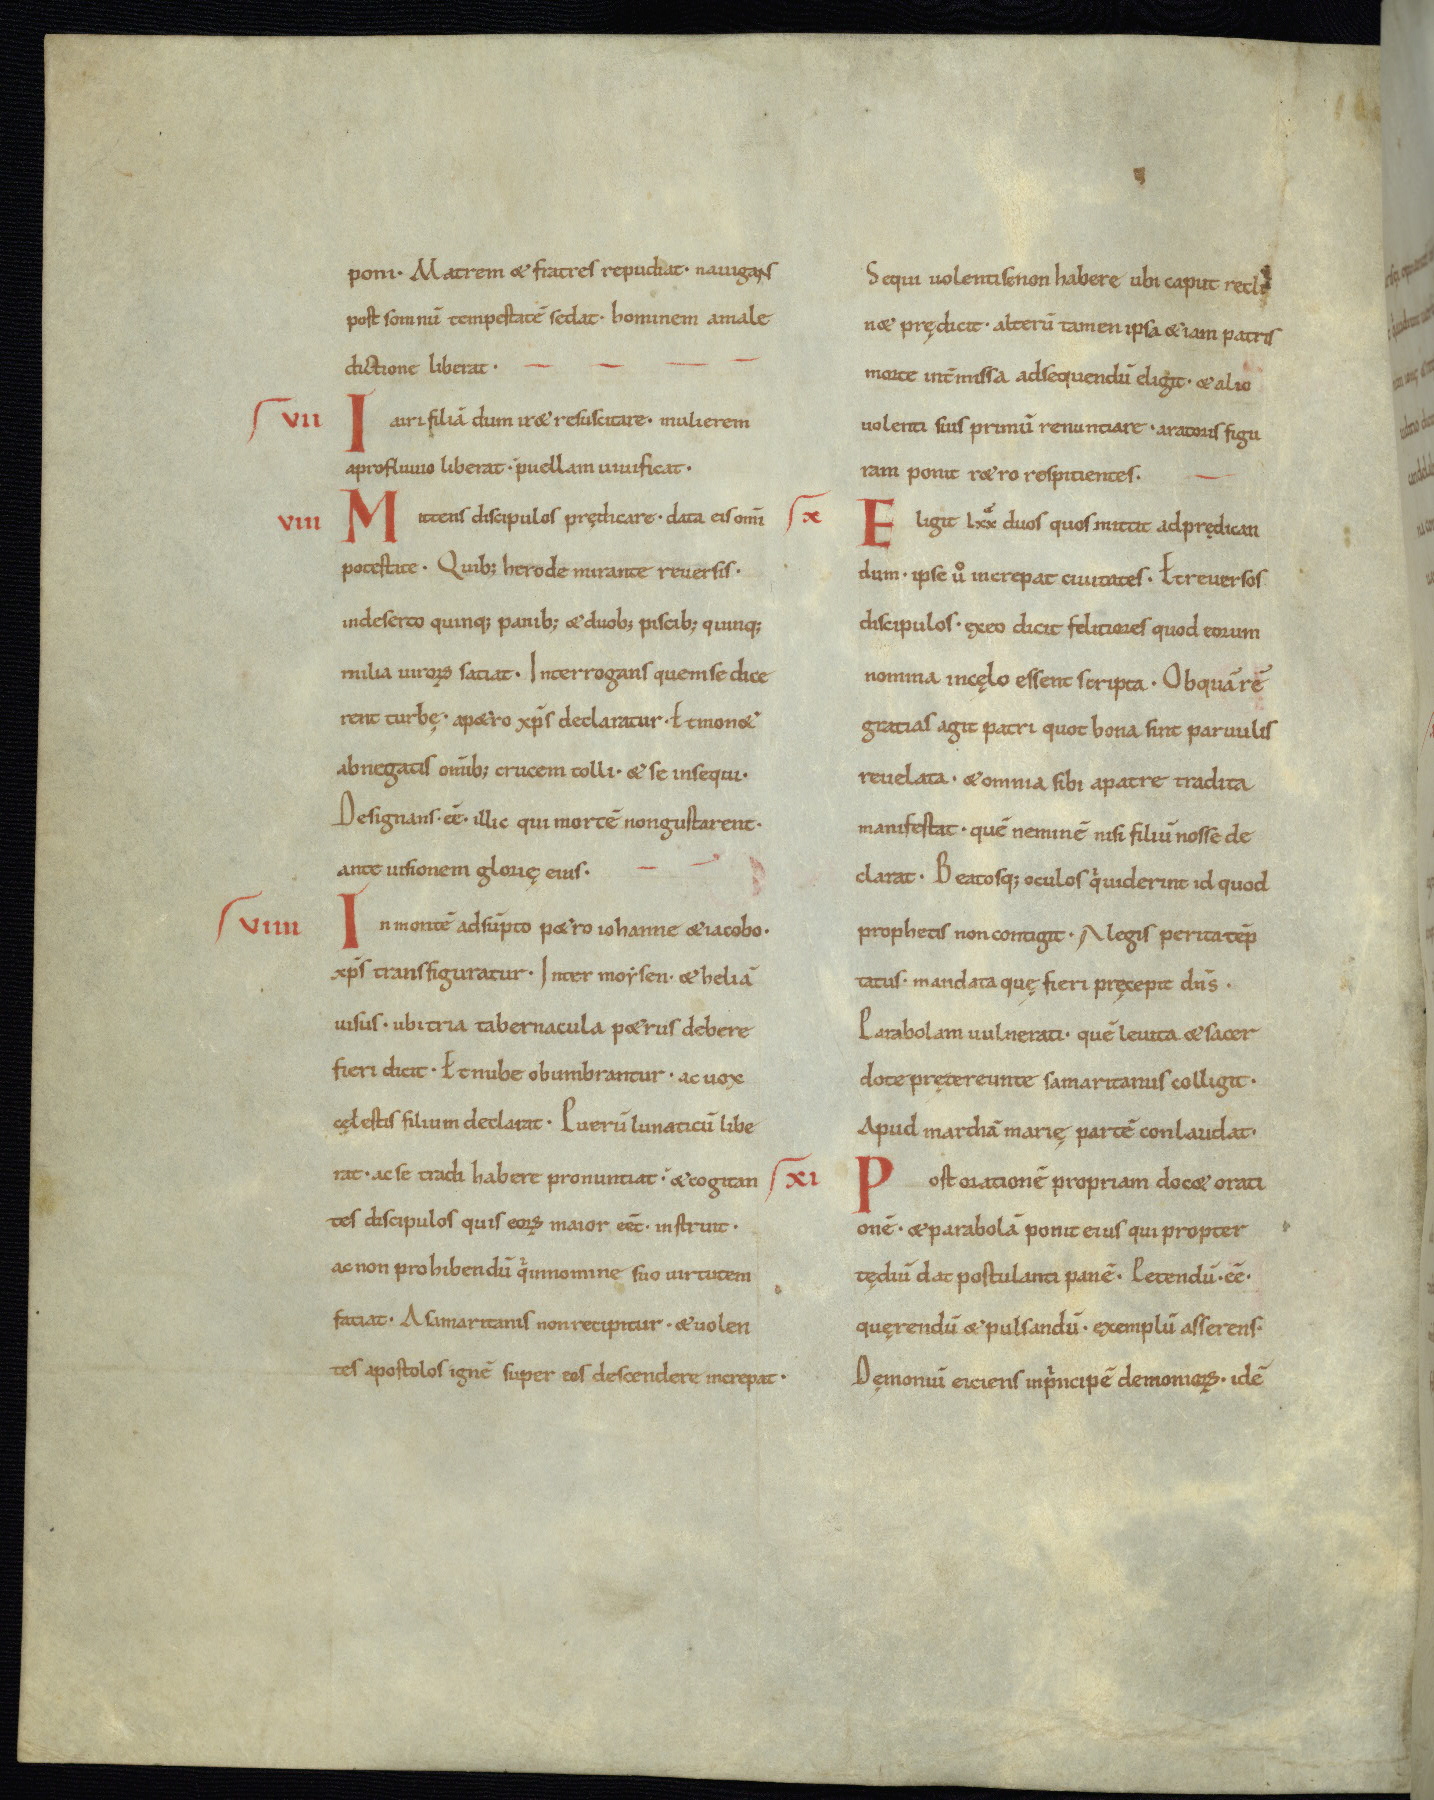 poni· Matrem & fratres repudiat· nauigans
post somnū tempestatē sedat· hominem amale
dictione liberat·
VII Iairi filiā dum ir& resuscitare· mulierem
aprofluuio liberat· puellam uiuificat·
VIII Mittens discipulos prędicare· data eis om̄i
potestate· Quib; herode mirante reuersis·
indeserto quinq; panib; & duob; piscib; quinq;
milia uiroꝝ satiat· Interrogans quem se dice
rent turbę· ap&ro xp̄s declaratur· Et mon&
abnegatis om̄ib; crucem tolli· & se insequi·
Designans· eē· illic qui mortē nongustarent·
ante uisionem glorię eius·
VIIII In montē adsūpto p&ro iohanne & iacobo·
xp̄s transfiguratur· Inter moẏsen· & heliā
uisus· ubi tria tabernacula p&rus debere
fieri dicit· Et nube obumbrantur· ac uox
cęlestis filium declarat· Puerū lunaticū libe
rat· ac se tradi habere pronuntiat· & cogitan
tes discipulos quis eoꝝ maior eēt· instruit·
ac non prohibendū qͥ innomine suo uirtutem
faciat· A samaritanis non recipitur· & uolen
tes apostolos ignē super eos descendere increpat·
Sequi uolenti se non habere ubi caput recli
n& prędicit· alterū tamen ipsa & iam patris
morte int̄missa adsequendū eligit· & alio
uolenti suis primū renuntiare· aratoris figu
ram ponit r&ro respitientes·
X Eligit lxx duos quos mittit adprędican
dum· ipse uͦ increpat ciuitates· Et reuersos
discipulos· ęxeo dicit felitiores quod eorum
nomina incęlo essent scripta· Ob quā rē
gratias agit patri quot bona sint paruulis
reuelata· & omnia sibi apatre tradita
manifestat· quē neminē nisi filiū nosse de
clarat· Beatosq; oculos qͥ uiderint id quod
prophetis non contigit· A legis perita tēp
tatus· mandata quę fieri pręcepit dn̄s·
Parabolam uulnerati· quē leuita & sacer
dote pręterreunte samaritanus colligit·
Apud marthā marię partē conlaudat·
XI Post orationē propriam doc& orati
onē· & parabolā ponit eius qui propter
tędiū dat postulanti panē· Petendū· eē·
quęrendū & pulsandū· exemplū asserens·
Dęmoniū eiciens inpͥncipē demonioꝝ· idē